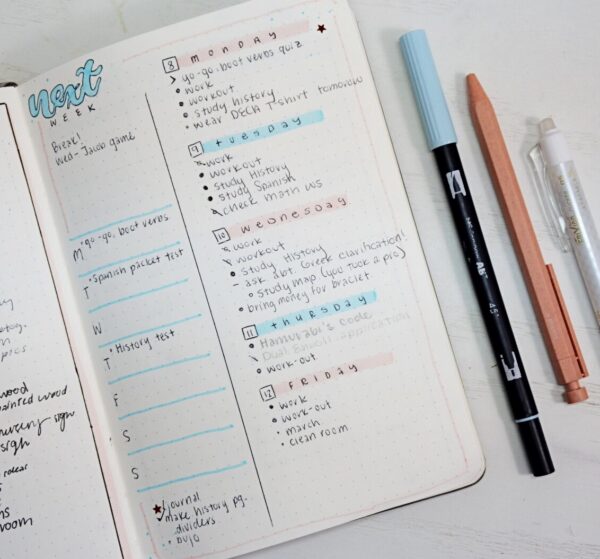 next
WEEK
Break!
Wed- Jacob game
M • go-go, boot verbs
T • Spanish packet test
W
T • History test
F
S
S
journal
make history pg.
dividers
• bujo
8 MONDAY
> go-go, boot verbs quiz
• work
• workout
• study history
• wear DECA T-shirt tomorrow
9 tuesday
work
• workout
• study History
• study Spanish
check math ws
10 wednesday
work
workout
• study History
- ask abt. Greek clarification!
• study map (you took a pic)
• bring money for braclet
11 thursday
• Hammurabi's code
Dual Enroll. application
• work-out
12 FRIDAY
• work
• work-out
• march
• clean room
pics
wood
painted wood
nursery sign
sign
room